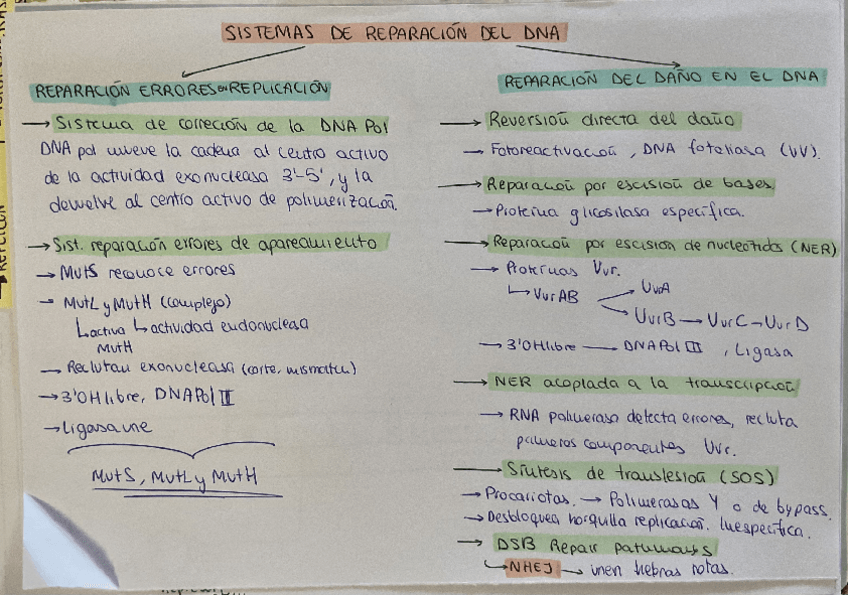 SISTEMAS DE REPARACIÓN DEL DNA
REPARACIÓN ERRORES EN REPLICACIÓN
→ Sistema de correción de la DNA Pol
DNA pol mueve la cadena al centro activo
de la actividad exonucleasa 3'-5', y la
devuelve al centro activo de polimerización.
→ Sist. reparación errores de apareamiento
→ MutS reconoce errores
→ MutL y MutH (complejo)
↳ activa ↳ actividad endonucleasa
MutH
→ Reclutan exonucleasa (corte, mismatch)
→ 3'OH libre, DNA Pol III
→ Ligasa une
MutS, MutL y MutH
REPARACIÓN DEL DAÑO EN EL DNA
→ Reversión directa del daño
→ Fotoreactivación, DNA fotoliasa (UV).
→ Reparación por escisión de bases.
→ Proteína glicosilasa específica.
→ Reparación por escisión de nucleótidos (NER)
→ Proteínas Uvr.
↳ UvrAB → UvrA
→ UvrB → UvrC → UvrD
→ 3'OH libre → DNA Pol III, Ligasa
→ NER acoplada a la transcripción
→ RNA polimerasa detecta errores, recluta
primeros componentes Uvr.
→ Síntesis de translesión (SOS)
→ Procariotas. → Polimerasas Y o de bypass.
→ Desbloquea horquilla replicación. Inespecífica.
→ DSB Repair pathways
↳ NHEJ → unen hebras rotas.